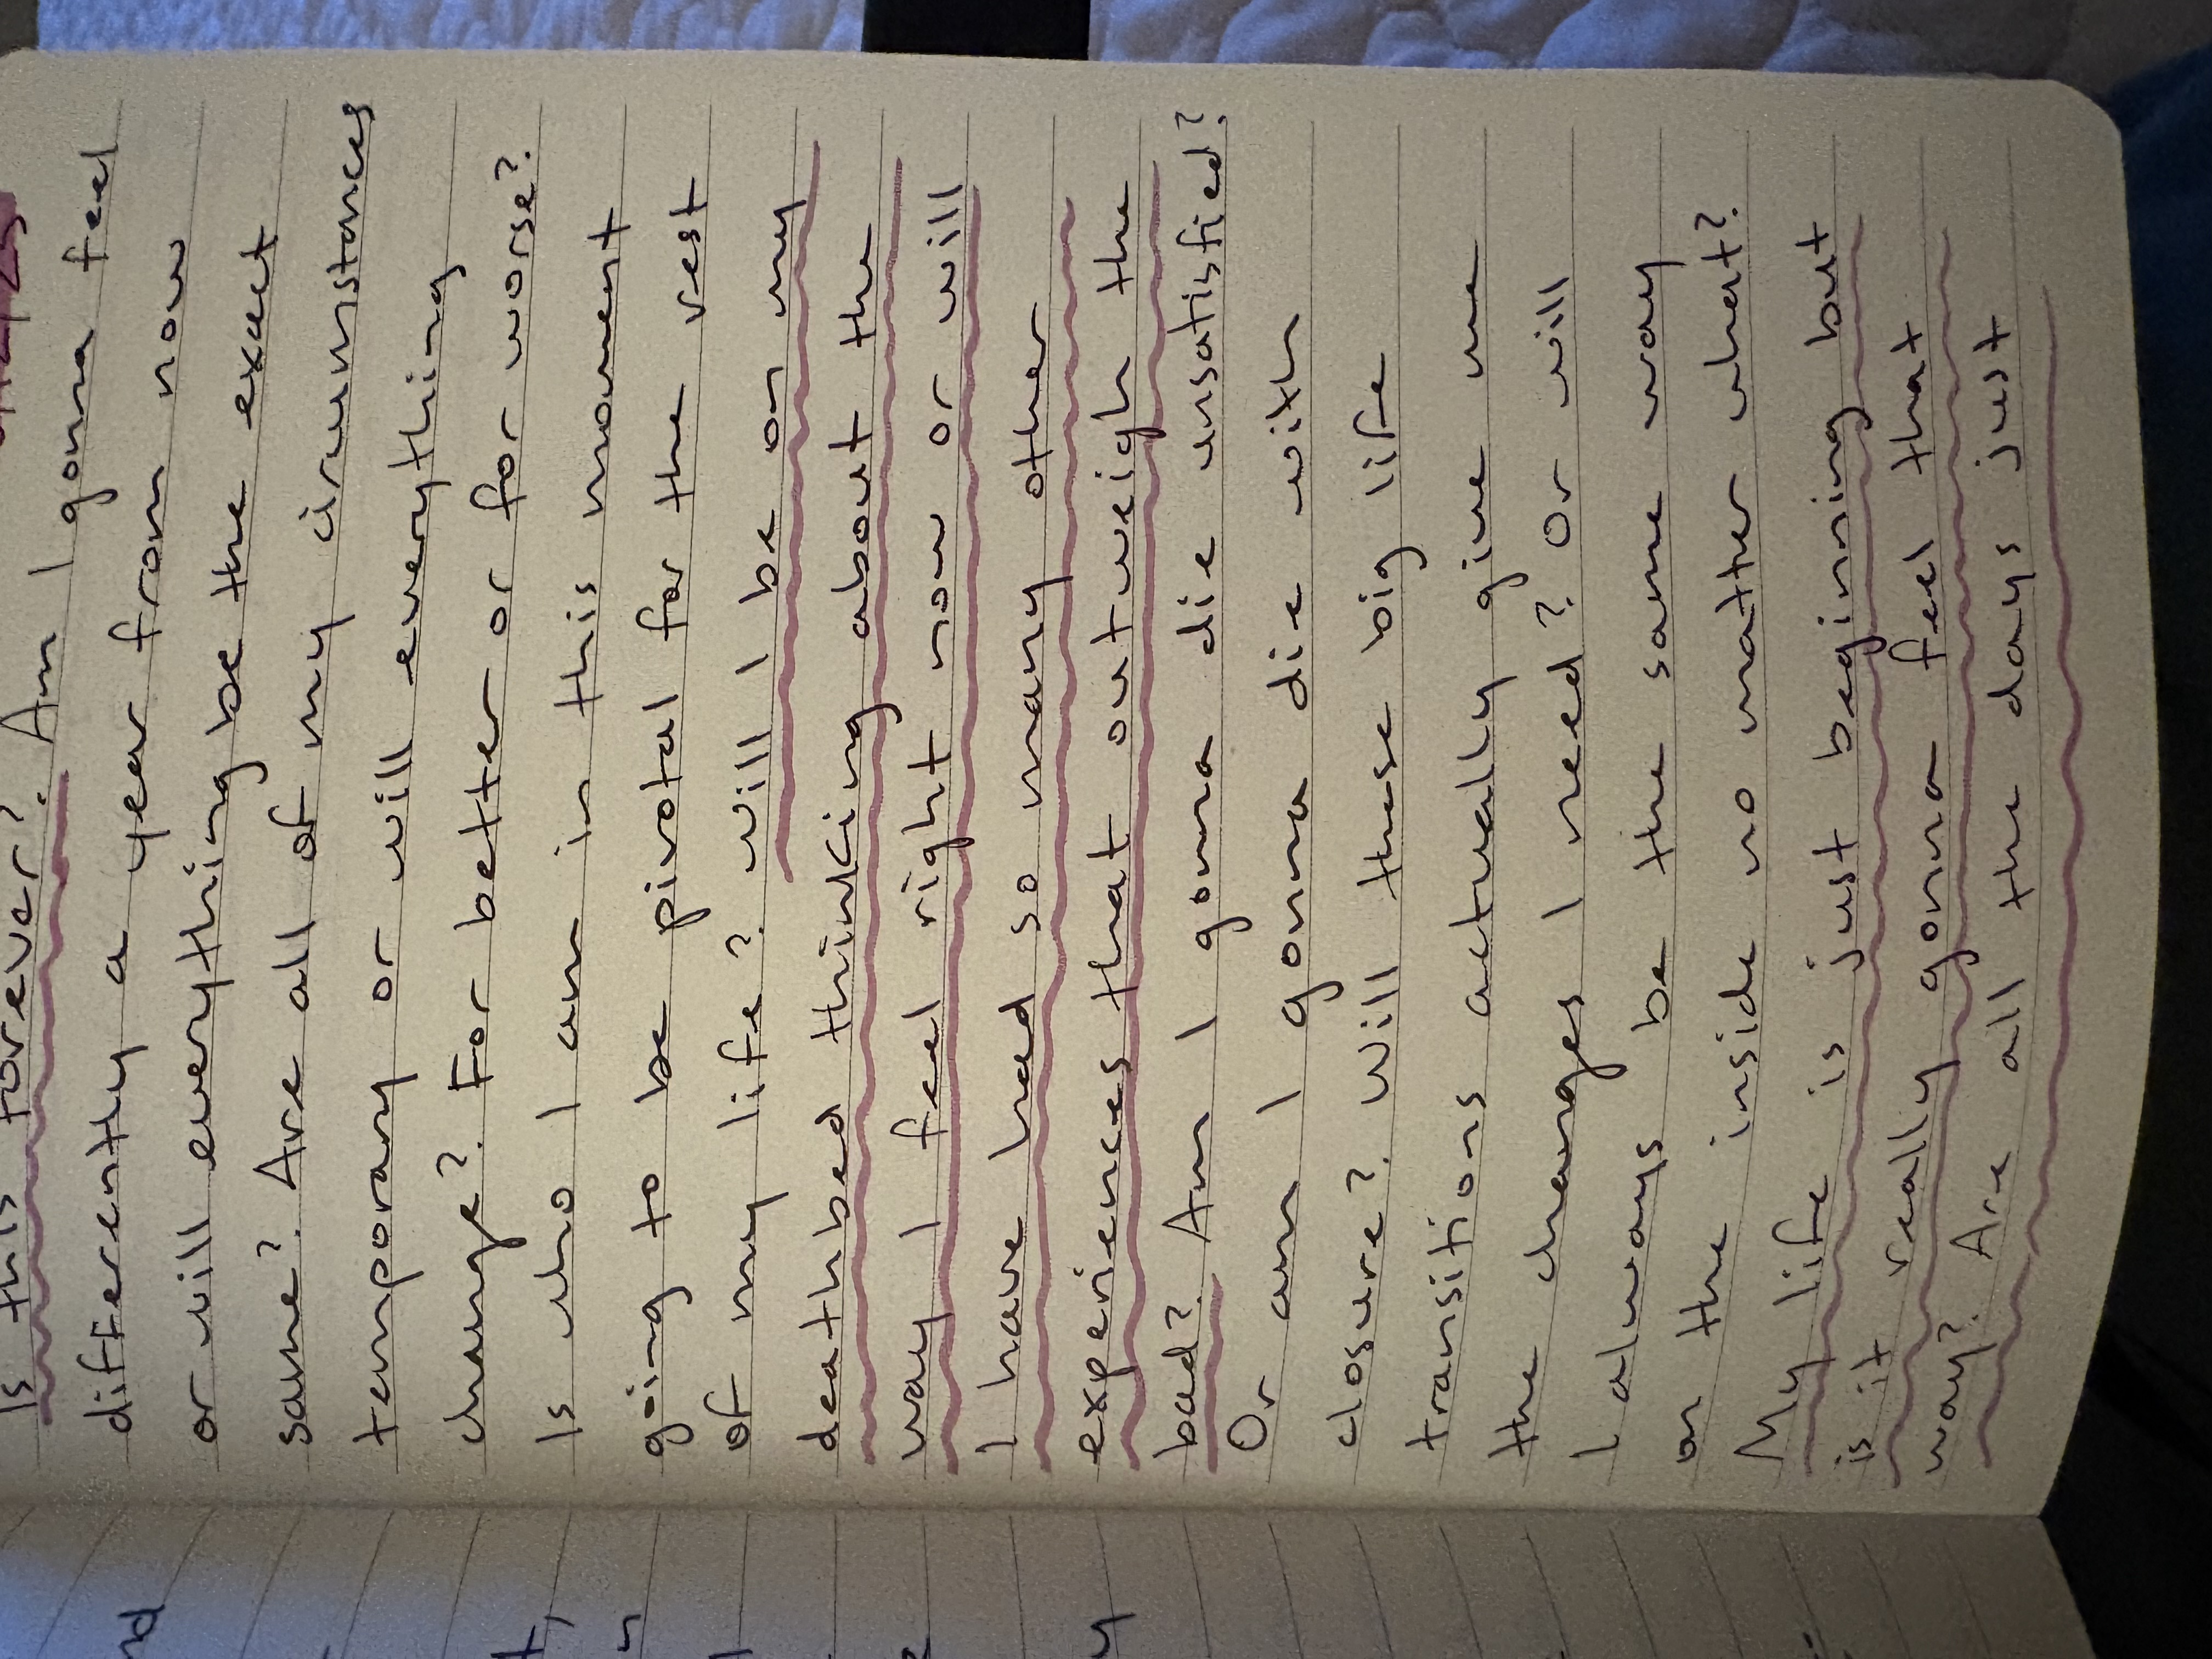 Is this forever? Am I gonna feel
differently a year from now
or will everything be the exact
same? Are all of my circumstances
temporary or will everything
change? For better or for worse?
Is who I am in this moment
going to be pivotal for the rest
of my life? Will I be on my
deathbed thinking about the
way I feel right now or will
I have had so many other
experiences that outweigh the
bad? Am I gonna die unsatisfied?
Or am I gonna die with
closure? Will these big life
transitions actually give me
the changes I need? Or will
I always be the same way
on the inside no matter what?
My life is just beginning but
is it really gonna feel that
way? Are all the days just